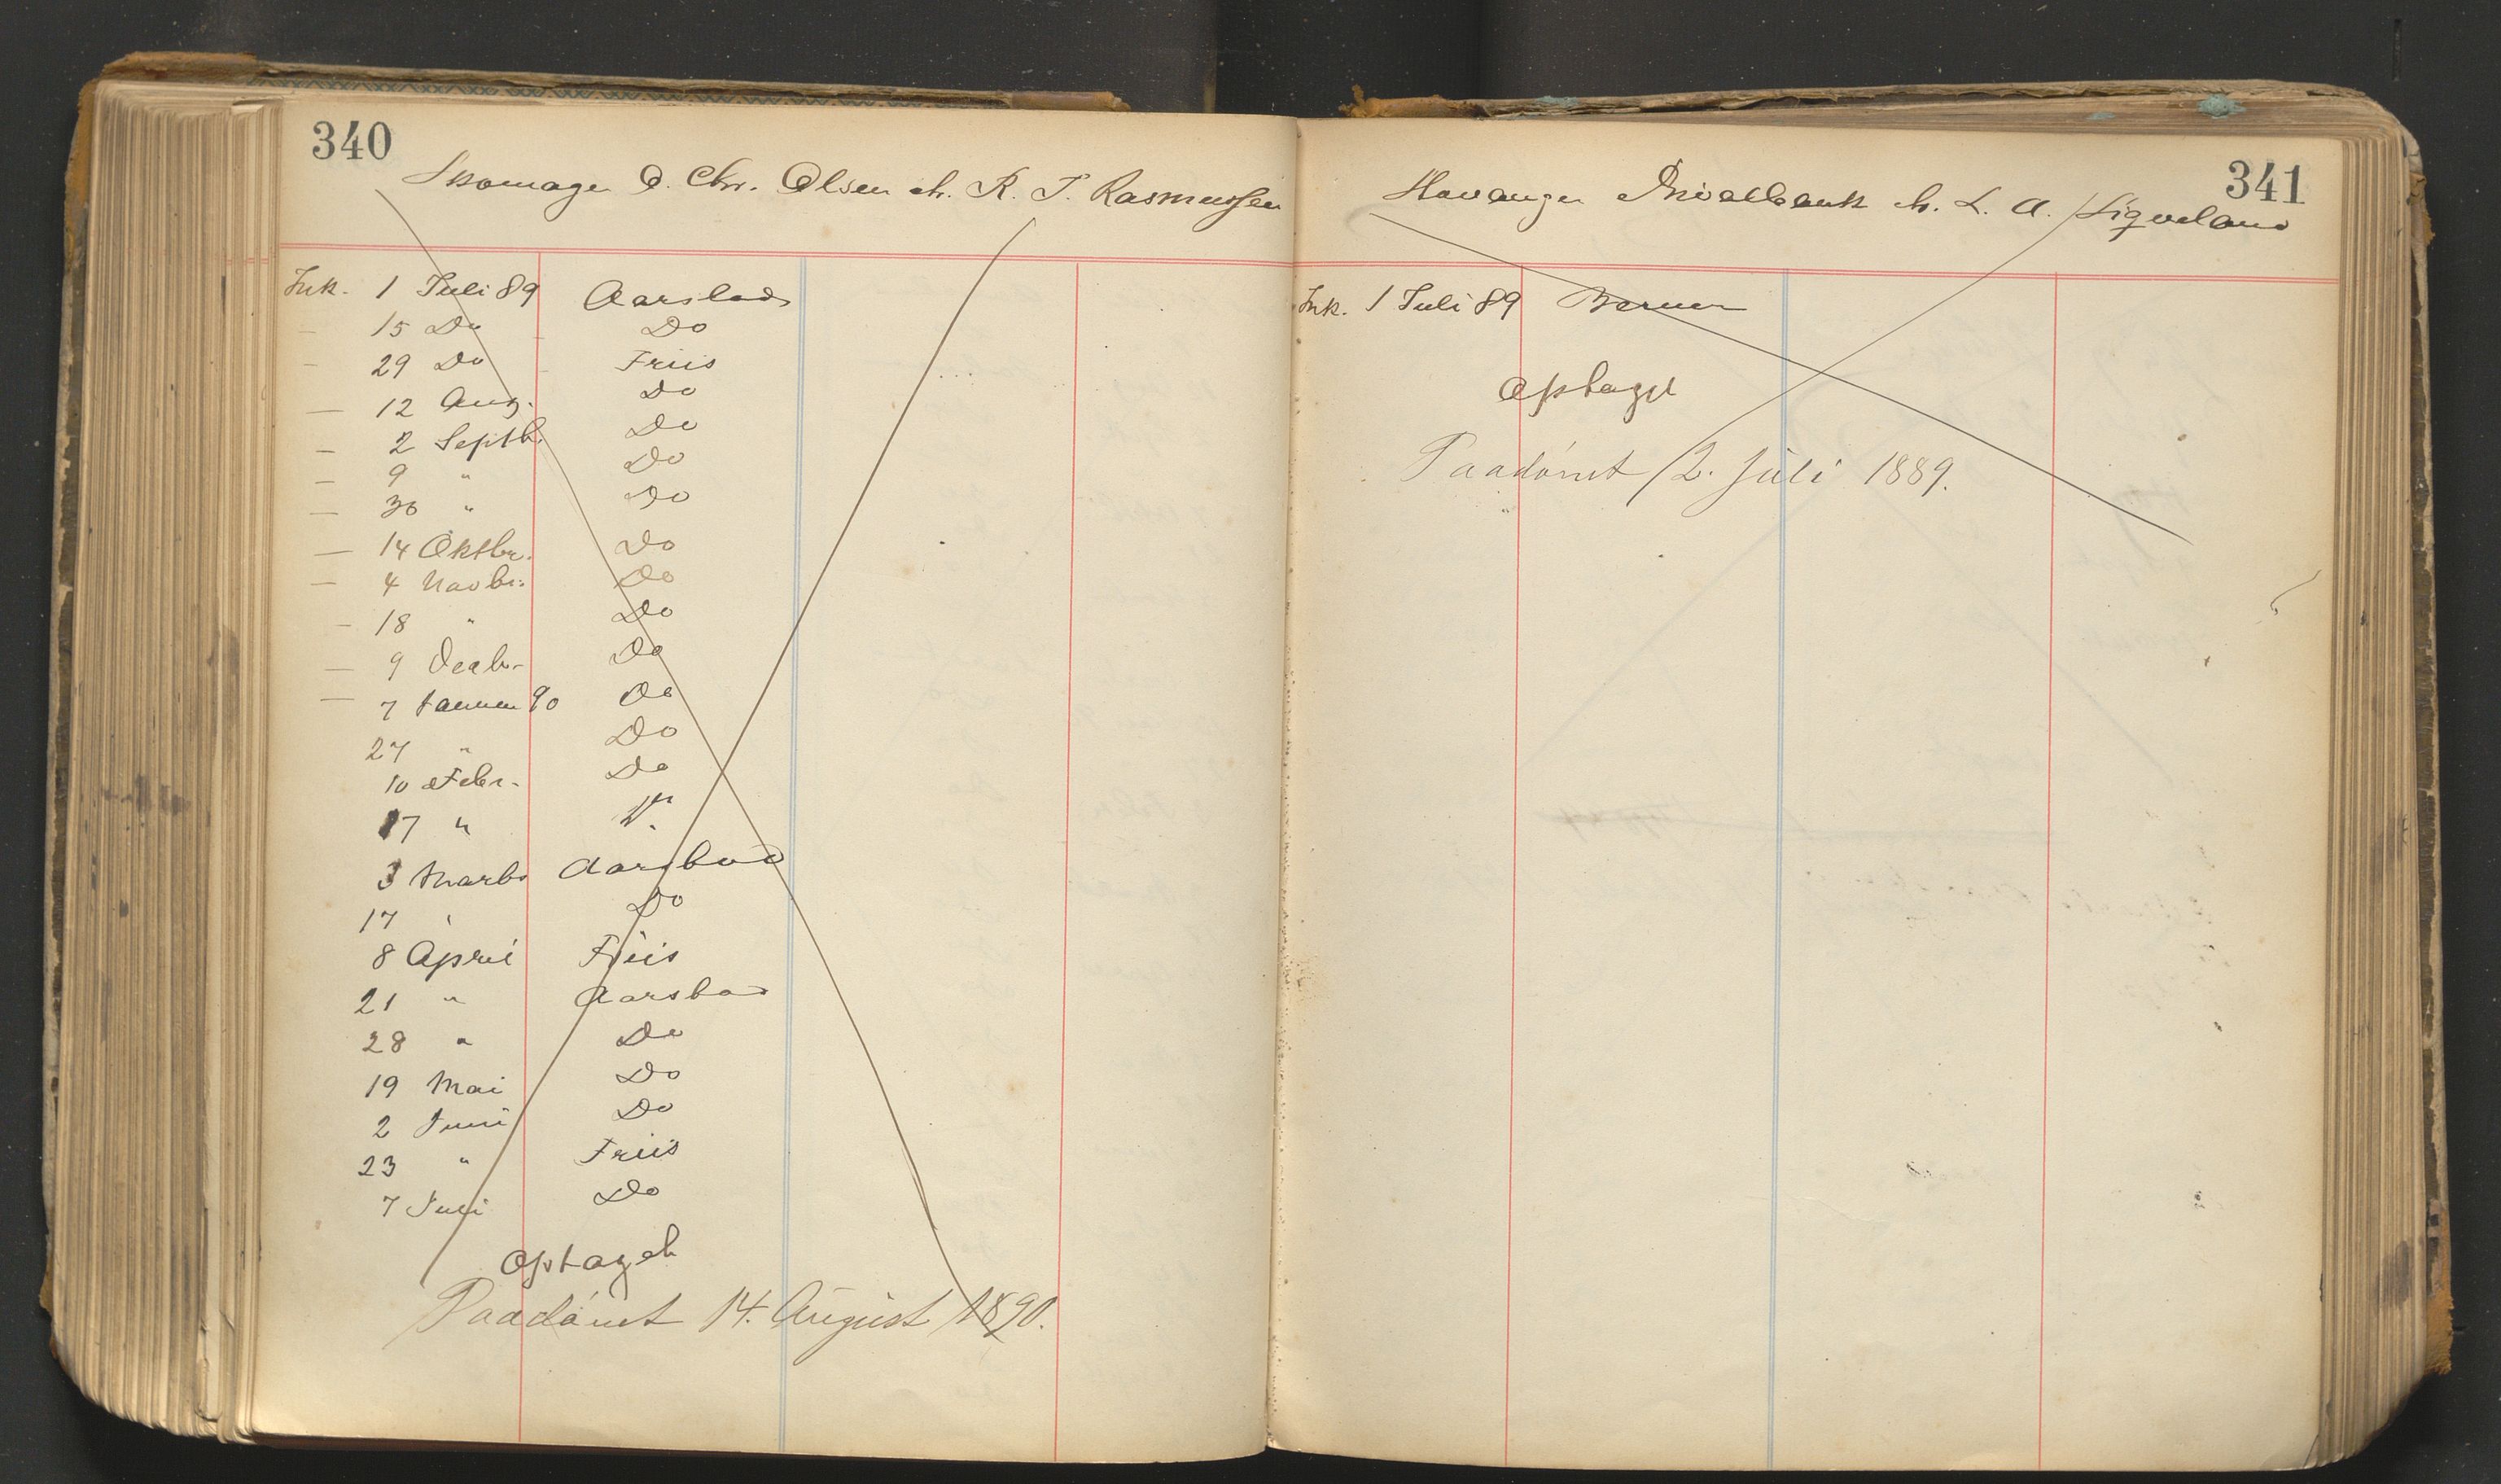 340
Skomager O. Chr. Olsen ctr. R. T. Rasmussen
Ink. 1 Juli 89 Aarstad
— 15 Do Do
— 29 Do Friis
— 12 Aug. Do
— 2 Septb. Do
— 9 " Do
— 30 " Do
— 14 Oktbr. Do
— 4 Novbr. Do
— 18 " Do
— 9 Decbr. Do
— 7 Januar 90 Do
27 " Do
10 Febr. Do
17 " Do
3 Marts Aarstad
17 " Do
8 April Friis
21 " Aarstad
28 " Do
19 Mai Do
2 Juni Do
23 " Friis
7 Juli Do
Optaget
Paadömt 14. August 1890.
341
Stavanger Privatbank ctr. L. A. Sigveland
Ink. 1 Juli 89 Berner
Optaget
Paadömt 12. Juli 1889.